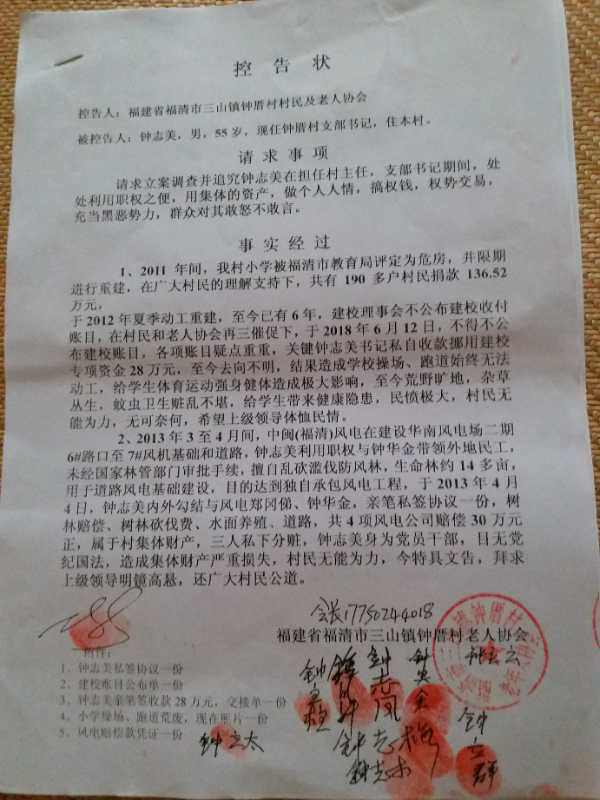 控告状
控告人：福建省福清市三山镇钟厝村村民及老人协会
被控告人：钟志美，男，55岁，现任钟厝村支部书记，住本村。
请求事项
请求立案调查并追究钟志美在担任村主任，支部书记期间，处
处利用职权之便，用集体的资产，做个人人情，搞权钱，权势交易，
充当黑恶势力，群众对其敢怒不敢言。
事实经过
1、2011年间，我村小学被福清市教育局评定为危房，并限期
进行重建，在广大村民的理解支持下，共有190多户村民捐款136.52
万元，
于2012年夏季动工重建，至今已有6年，建校理事会不公布建校收付
账目，在村民和老人协会再三催促下，于2018年6月12日，不得不公
布建校账目，各项账目疑点重重，关键钟志美书记私自收款挪用建校
专项资金28万元，至今去向不明，结果造成学校操场、跑道始终无法
动工，给学生体育运动强身健体造成极大影响，至今荒野旷地，杂草
丛生，蚊虫卫生赃乱不堪，给学生带来健康隐患，民愤极大，村民无
能为力，无可奈何，希望上级领导体恤民情。
2、2013年3至4月间，中闽(福清)风电在建设华南风电场二期
6#路口至7#风机基础和道路，钟志美利用职权与钟华金带领外地民工，
未经国家林管部门审批手续，擅自乱砍滥伐防风林，生命林约14多亩，
用于道路风电基础建设，目的达到独自承包风电工程，于2013年4月
4日，钟志美内外勾结与风电郑冈俤、钟华金，亲笔私签协议一份，树
林赔偿、树林砍伐费、水面养殖、道路，共4项风电公司赔偿30万元
正，属于村集体财产，三人私下分赃，钟志美身为党员干部，目无党
纪国法，造成集体财产严重损失，村民无能为力，今特具文告，拜求
上级领导明镜高悬，还广大村民公道。
会长17750244018
福建省福清市三山镇钟厝村老人协会
附件：
1、钟志美私签协议一份
2、建校账目公布单一份
3、钟志美亲笔签收款28万元，交接单一份
4、小学操场、跑道荒废，现在照片一份
5、风电赔偿款凭证一份
钟立太
钟志梅
钟志木
钟立群